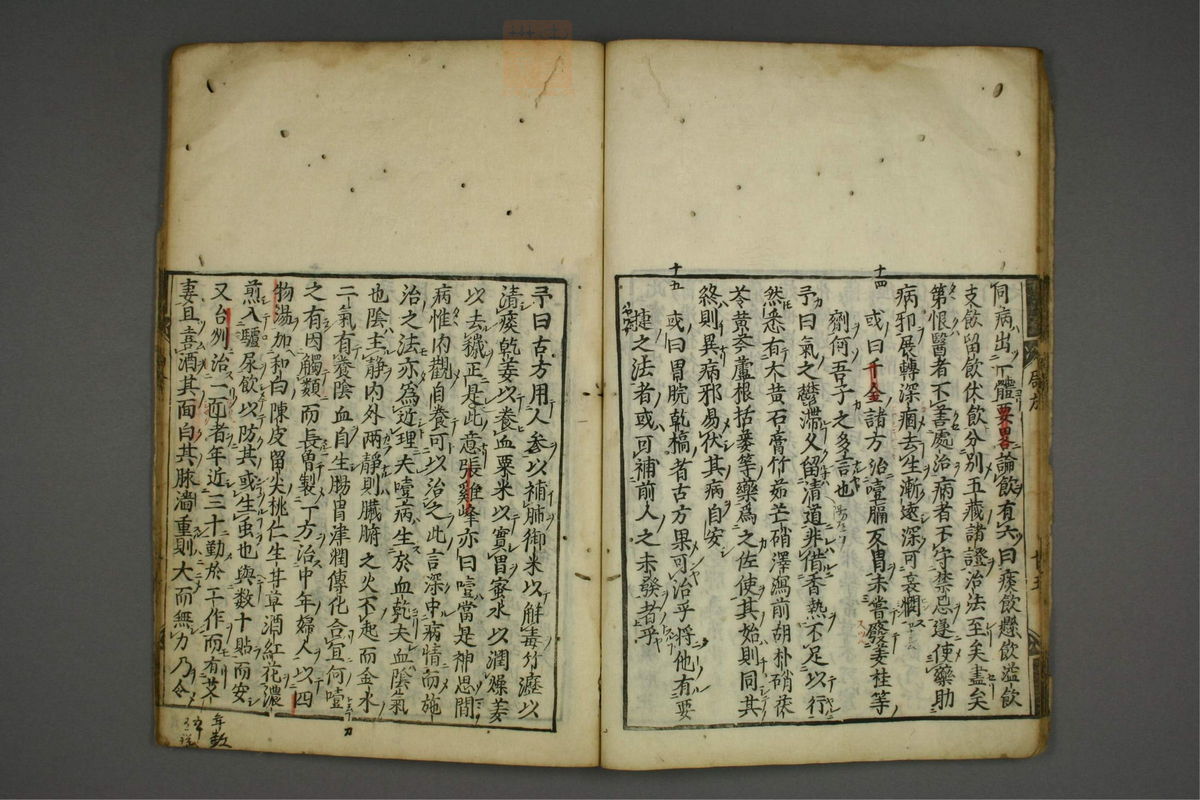 同病出一體要畧論飲有六曰痰飲懸飲溢飲
支飲留飲伏飲分別五藏諸證治法至矣盡矣
第恨醫者不善處治病者不守禁忌遂使藥助
病邪展轉深痼去生漸遠深可哀憫
十四
或曰千金諸方治噎膈反胃未嘗廢姜桂等
劑何吾子之多言也
予曰氣之鬱滯久留清道非借香熱不足以行
然悉有大黄石膏竹茹芒硝澤瀉前胡朴硝茯
苓黄芩蘆根括蔞等藥爲之佐使其始則同其
終則異病邪易伏其病自安
十五
或曰胃脘乾槁者古方果可治乎將他有要
捷之法者或可補前人之未發者乎
予曰古方用人参以補肺御米以觧毒竹瀝以
清痰乾姜以養血粟米以實胃蜜水以潤燥姜
以去穢正是此意張雞峰亦曰噎當是神思間
病惟内觀自養可以治之此言深中病情而施
治之法亦爲近理夫噎病生於血乾夫血陰氣
也陰主静内外兩静則臓腑之火不起而金水
二氣有養陰血自生腸胃津潤傳化合宜何噎
之有因觸類而長曽製一方治中年婦人以四
物湯加和白陳皮留尖桃仁生甘草酒紅花濃
煎入驢尿飲以防其或生虫也與数十貼而安
又台州治一匠者年近三十勤於工作而有艾
妻且喜酒其面白其脉濇重則大而無力乃令